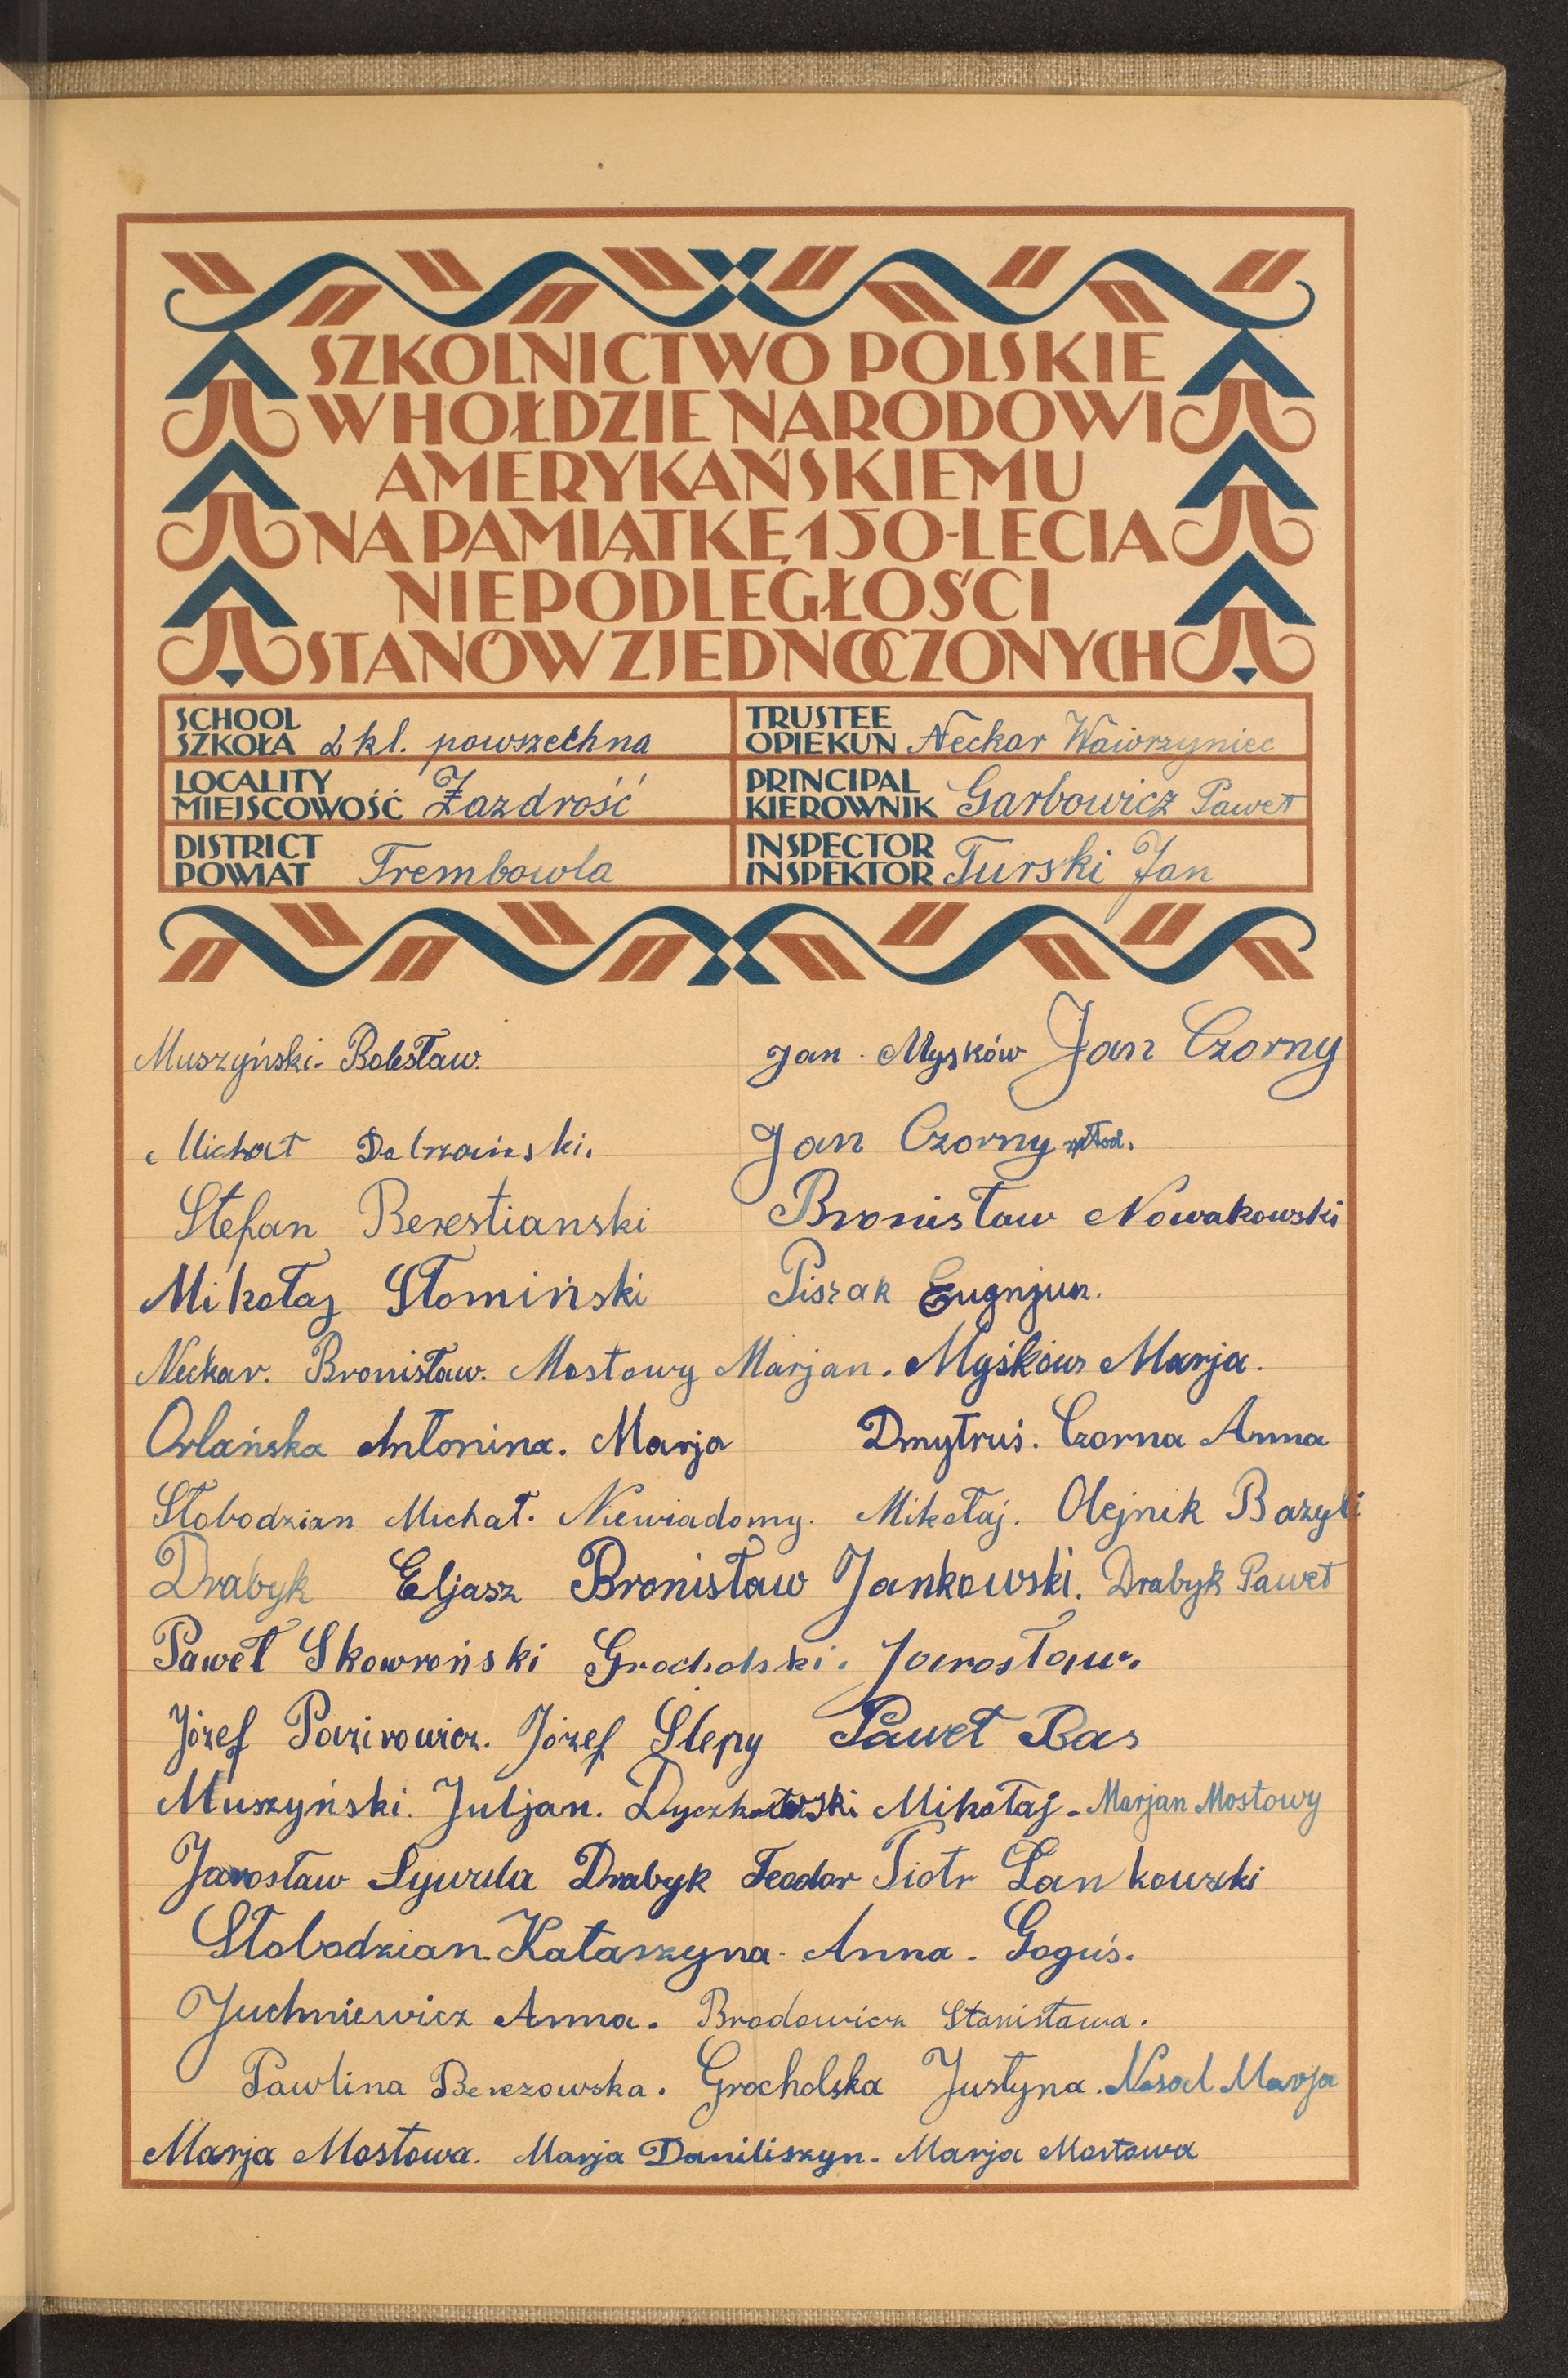 SZKOLNICTWO POLSKIE
W HOŁDZIE NARODOWI
AMERYKAŃSKIEMU
NA PAMIĄTKĘ 150-LECIA
NIEPODLEGŁOŚCI
STANÓW ZJEDNOCZONYCH
SCHOOL
SZKOŁA 2 kl. powszechna
TRUSTEE
OPIEKUN Neckar Wawrzyniec
LOCALITY
MIEJSCOWOŚĆ Zazdrość
PRINCIPAL
KIEROWNIK Garbowicz Paweł
DISTRICT
POWIAT Trembowla
INSPECTOR
INSPEKTOR Turski Jan
Muszyński Bolesław. Jan Mysków Jan Czorny
Michał Jan Czorny młod.
Stefan Berestianski Bronisław Nowakowski
Mikołaj Słomiński Piszak Eugnjun.
Neckar. Bronisław. Mostowy Marjan. Myśków Marja.
Orlańska Antonina. Marja Dmytruś. Czorna Anna
Słobodzian Michał. Niewiadomy. Mikołaj. Olejnik Bazyli
Drabyk Eljasz Bronisław Jankowski. Drabyk Paweł
Paweł Skowroński Grocholski. Jarosław.
Józef Józef Slepy Paweł Bas
Muszyński. Juljan. Mikołaj - Marjan Mostowy
Jarosław Drabyk Teodor Piotr Lankowski
Słobodzian. Katarzyna. Anna. Goguś.
Juchniewicz Anna. Brodowicz Stanisława.
Pawlina Berezowska. Grocholska Justyna. Nosal Marja
Marja Mostowa. Marja Daniliszyn. Marja Mostowa